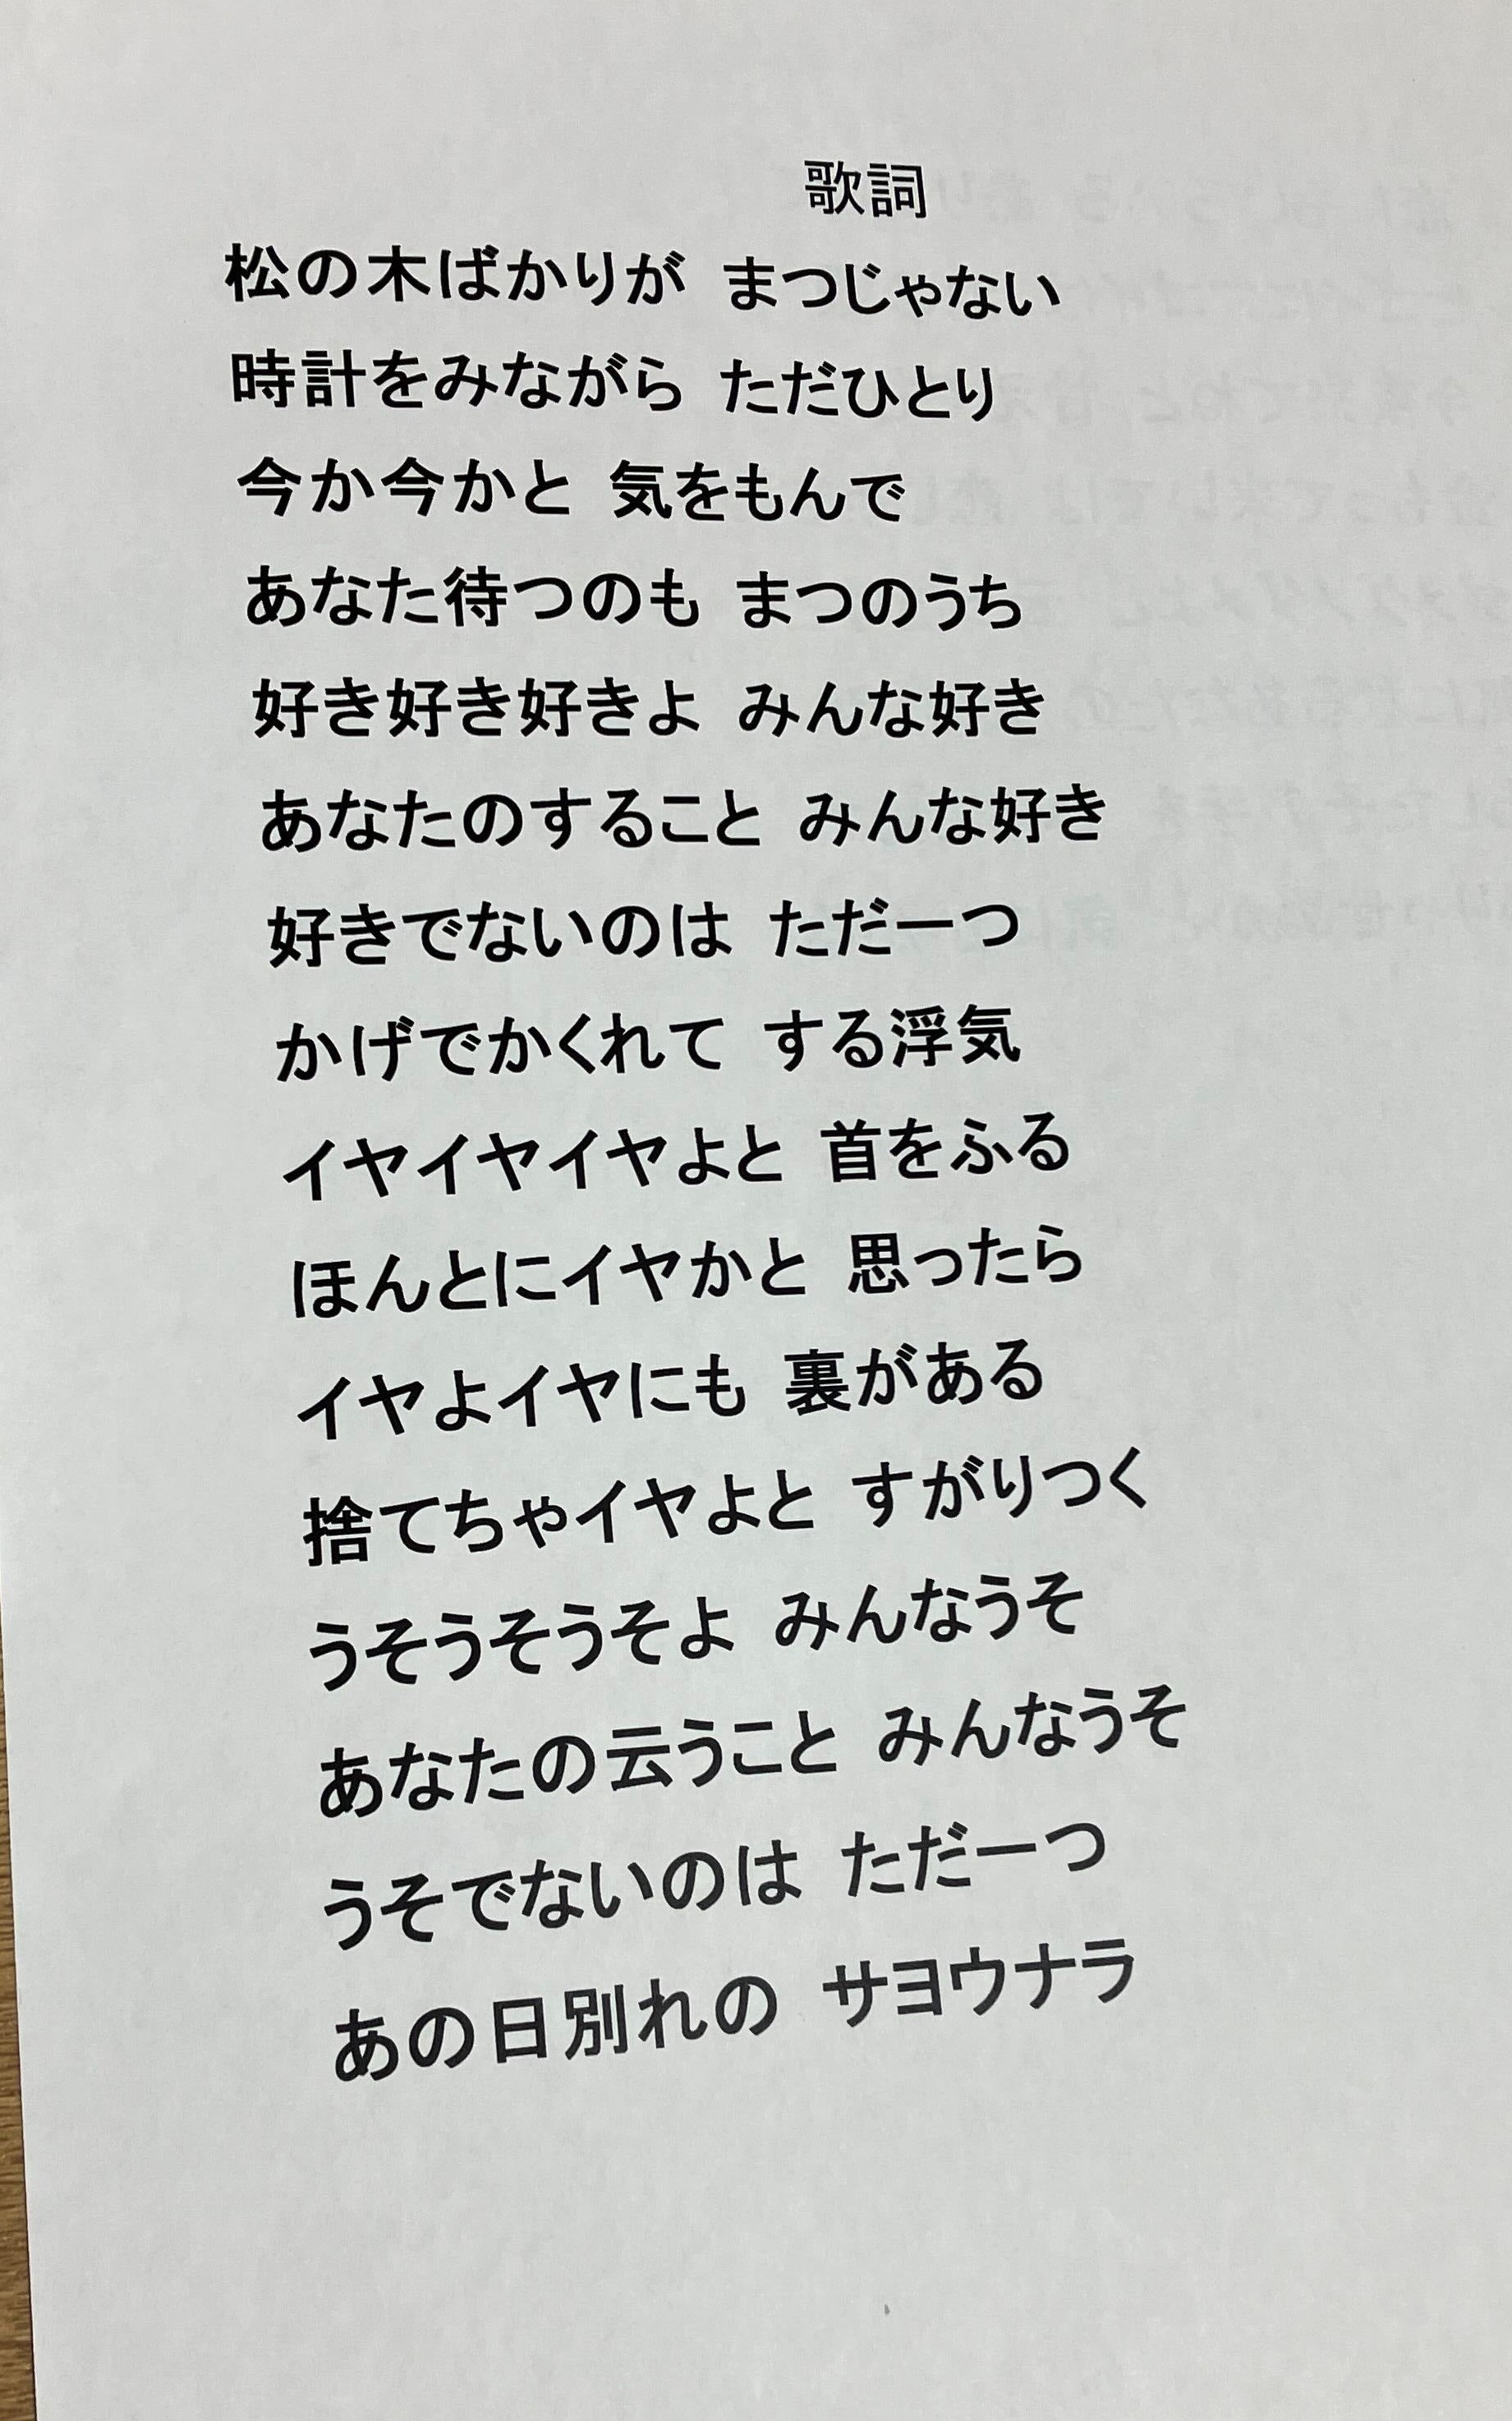 歌詞
松の木ばかりが まつじゃない
時計をみながら ただひとり
今か今かと 気をもんで
あなた待つのも まつのうち
好き好き好きよ みんな好き
あなたのすること みんな好き
好きでないのは ただ一つ
かげでかくれて する浮気
イヤイヤイヤよと 首をふる
ほんとにイヤかと 思ったら
イヤよイヤにも 裏がある
捨てちゃイヤよと すがりつく
うそうそうそよ みんなうそ
あなたの云うこと みんなうそ
うそでないのは ただ一つ
あの日別れの サヨウナラ